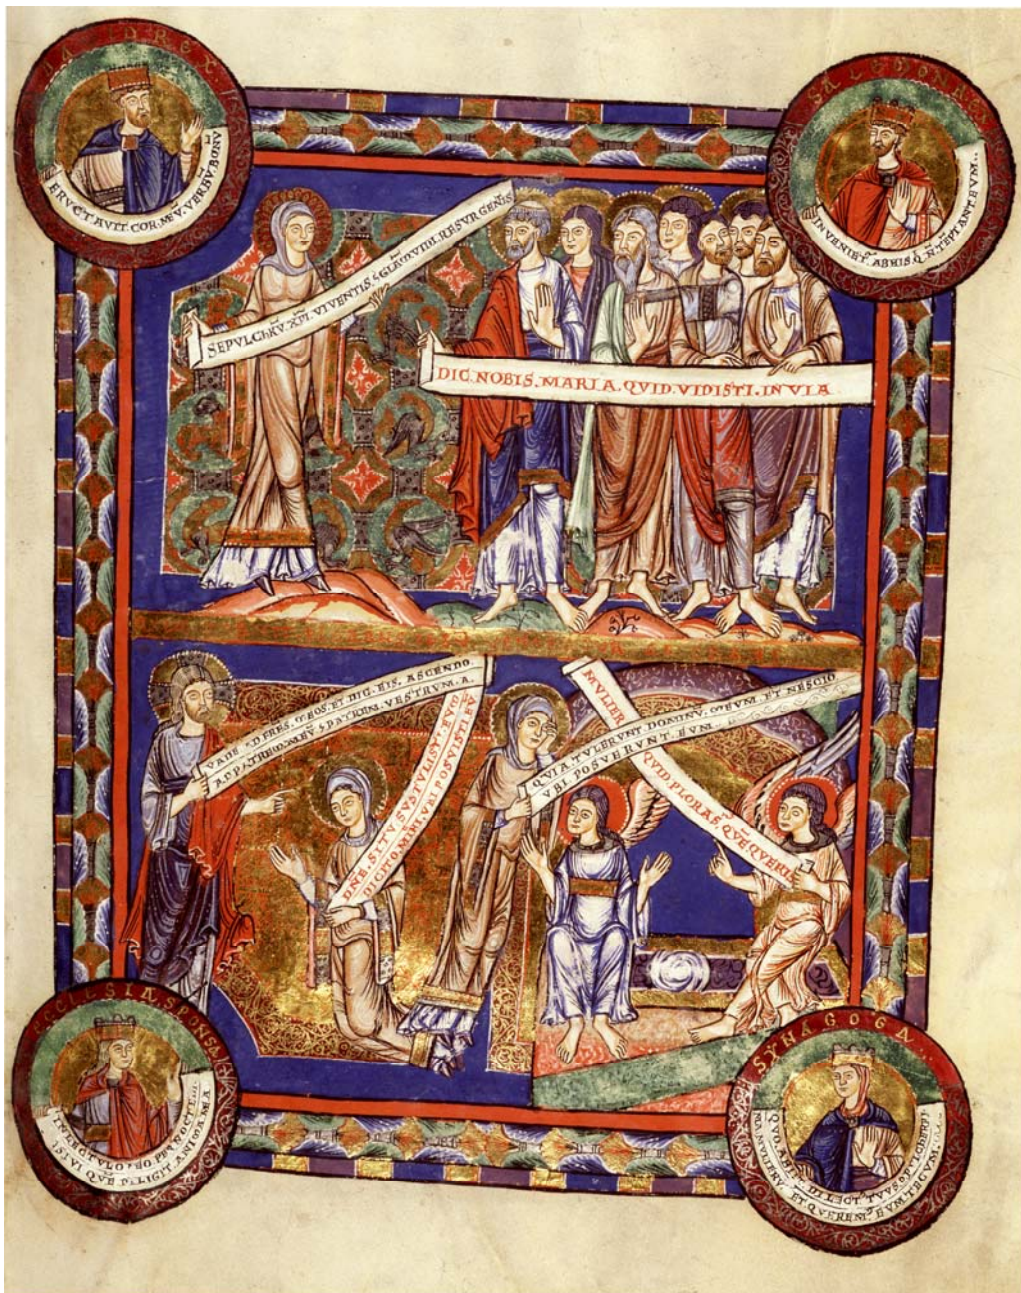 DAVID REX
ERVCTAVIT. COR. MEV̄. VERBV̄. BONV̄
SALEMON REX
INVENIET. AB HIS. Q̄. N̄. TEPTANT. EVM..
SEPVLCHRV̄. X̄PI. VIVENTIS. ⁊. GLĀM. VIDI. RESVRGENTIS
DIC. NOBIS. MARIA. QVID. VIDISTI. IN VIA
VADE. AD FRES. MEOS. ET DIC. EIS. ASCENDO.
AD PATREM. MEV̄. ⁊. PATREM. VESTRVM. A.
DN̄E. SI. TV. SVSTVLISTI. EV̄.
DICITO. MIHI. VBI. POSVISTI. EV̄
QVIA. TVLERVNT. DOMINV̄. MEVM. ET. NESCIO
VBI. POSVERVNT. EVM.
MVLIER
QVID. PLORAS. QVĒ. QVERIS
ECCLESIA. SPONSA
IN LECTVLO. MEO PER NOCTE
ISIVI QVĒ. DILIGIT. ANIMA MEA
SYNAGOGA...
QVO. ABIIT. DILECT'. TVVS. O PVLCHERRI
MA. MVLIERV̄. ET QVEREM'. EVM. TECVM...